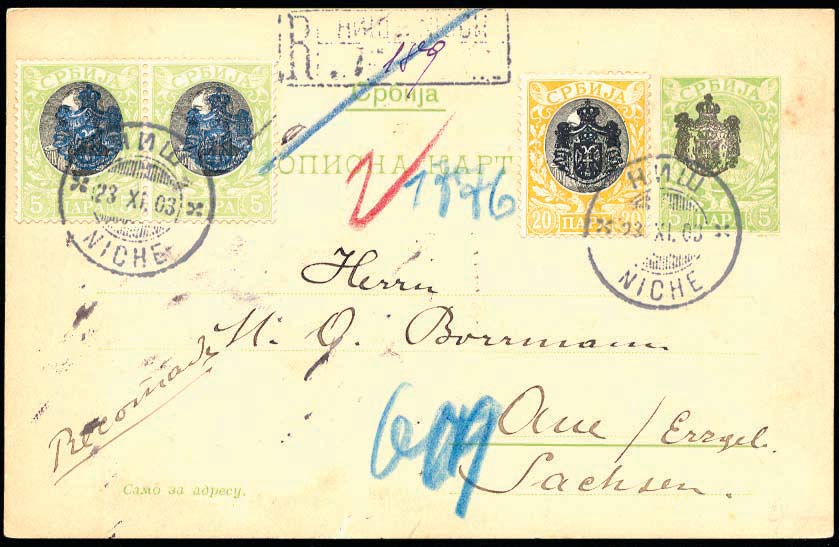 НИШ NICH
R
189
СРБИЈА СРБИЈА
5 ПАРА 5 ПАРА
НИШ
23 XI. 03
NICHE
Србија
ОПИСНА КАРТ
СРБИЈА
20 ПАРА 20
5 5
НИШ
23 XI. 03
NICHE
1376
Herrn
H. O. Borrmann
Recomadé
Aue / Erzgeb.
Sachsen.
609
Само за адресу.